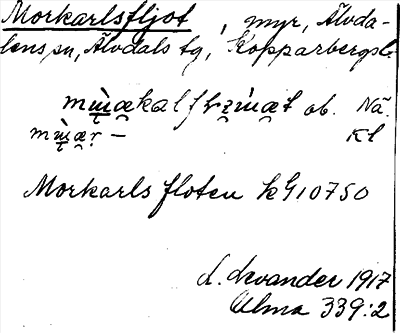 Morkarlsfljot, myr, Älvda-
lens sn, Älvdals tg, Kopparbergs l.
ob. Nä.
Kl
Morkarls floten kG10750
L. Levander 1917
Ulma 339:2